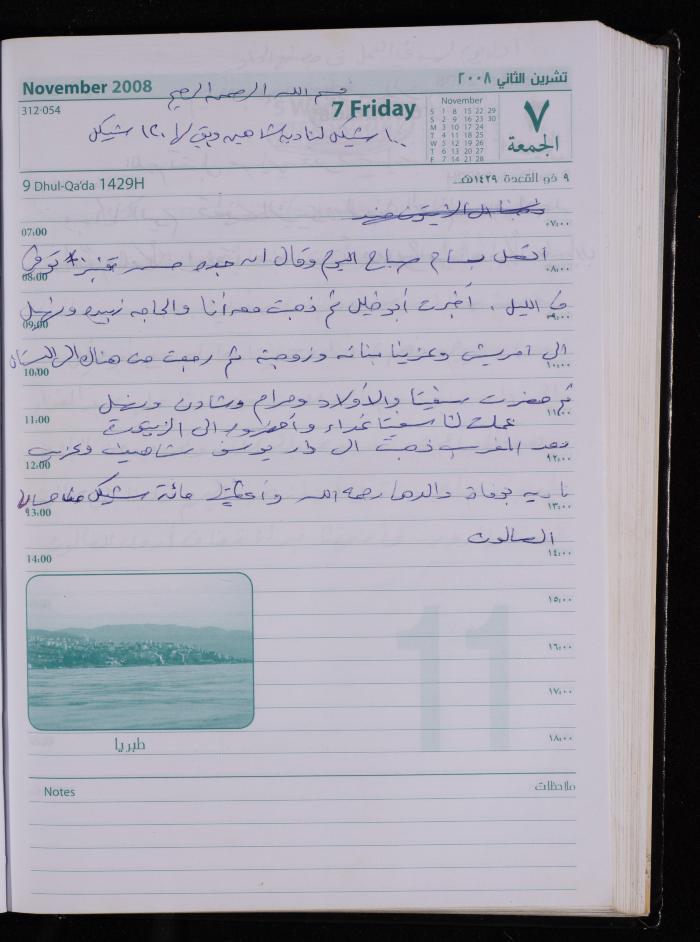 November 2008
بسم الله الرحمن الرحيم
تشرين الثاني ٢٠٠٨
312-054
7 Friday
November
S 1 8 15 22 29
S 2 9 16 23 30
M 3 10 17 24
T 4 11 18 25
W 5 12 19 26
T 6 13 20 27
F 7 14 21 28
٧
الجمعة
١٠٠ شيكل لنادية شاهين وبقي لها ١٢٠ شيكل
9 Dhul-Qa'da 1429H
٩ ذو القعدة ١٤٢٩هـ
07:00
٠٧:٠٠
اتصل بسام صباح اليوم وقال ان توفي
08:00
٠٨:٠٠
في الليل . أخبرت أبو خليل ثم ذهبت معه أنا والحاجه
09:00
٠٩:٠٠
الى وعزينا بناته وزوجته ثم رجعت من هناك الى
10:00
١٠:٠٠
ثم حضرت والأولاد ومرام وشادن
11:00
١١:٠٠
عملت لنا غداء الى
بعد المغرب ذهبت الى دار يوسف شاهين وعزيت
12:00
١٢:٠٠
ناديه بوفاة والدها رحمه الله مائة شيكل
13:00
١٣:٠٠
الصالون
14:00
١٤:٠٠
١٥:٠٠
11
١٦:٠٠
١٧:٠٠
١٨:٠٠
طبريا
Notes
ملاحظات